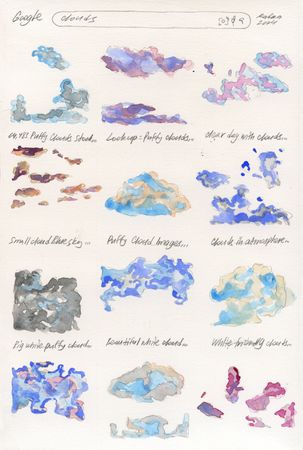 Google clouds
2024
Puffy Clouds Stock...
Look up = Puffy clouds...
clear day with clouds...
Small cloud blue sky...
Puffy Cloud Images...
Clouds in atmosphere...
Big white puffy cloud...
Beautiful white cloud...
White-friendly clouds...